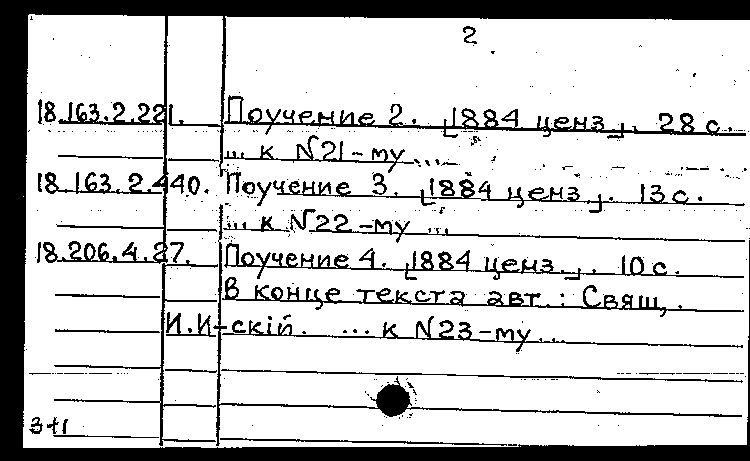 2
18.163.2.221. Поучение 2. [1884 ценз]. 28 с.
... к N21-му ...
18.163.2.440. Поучение 3. [1884 ценз]. 13 с.
... к N22-му ...
18.206.4.27. Поучение 4. [1884 ценз.]. 10 с.
В конце текста авт.: Свящ.
И.И-скій. ... к N23-му ...
3+1